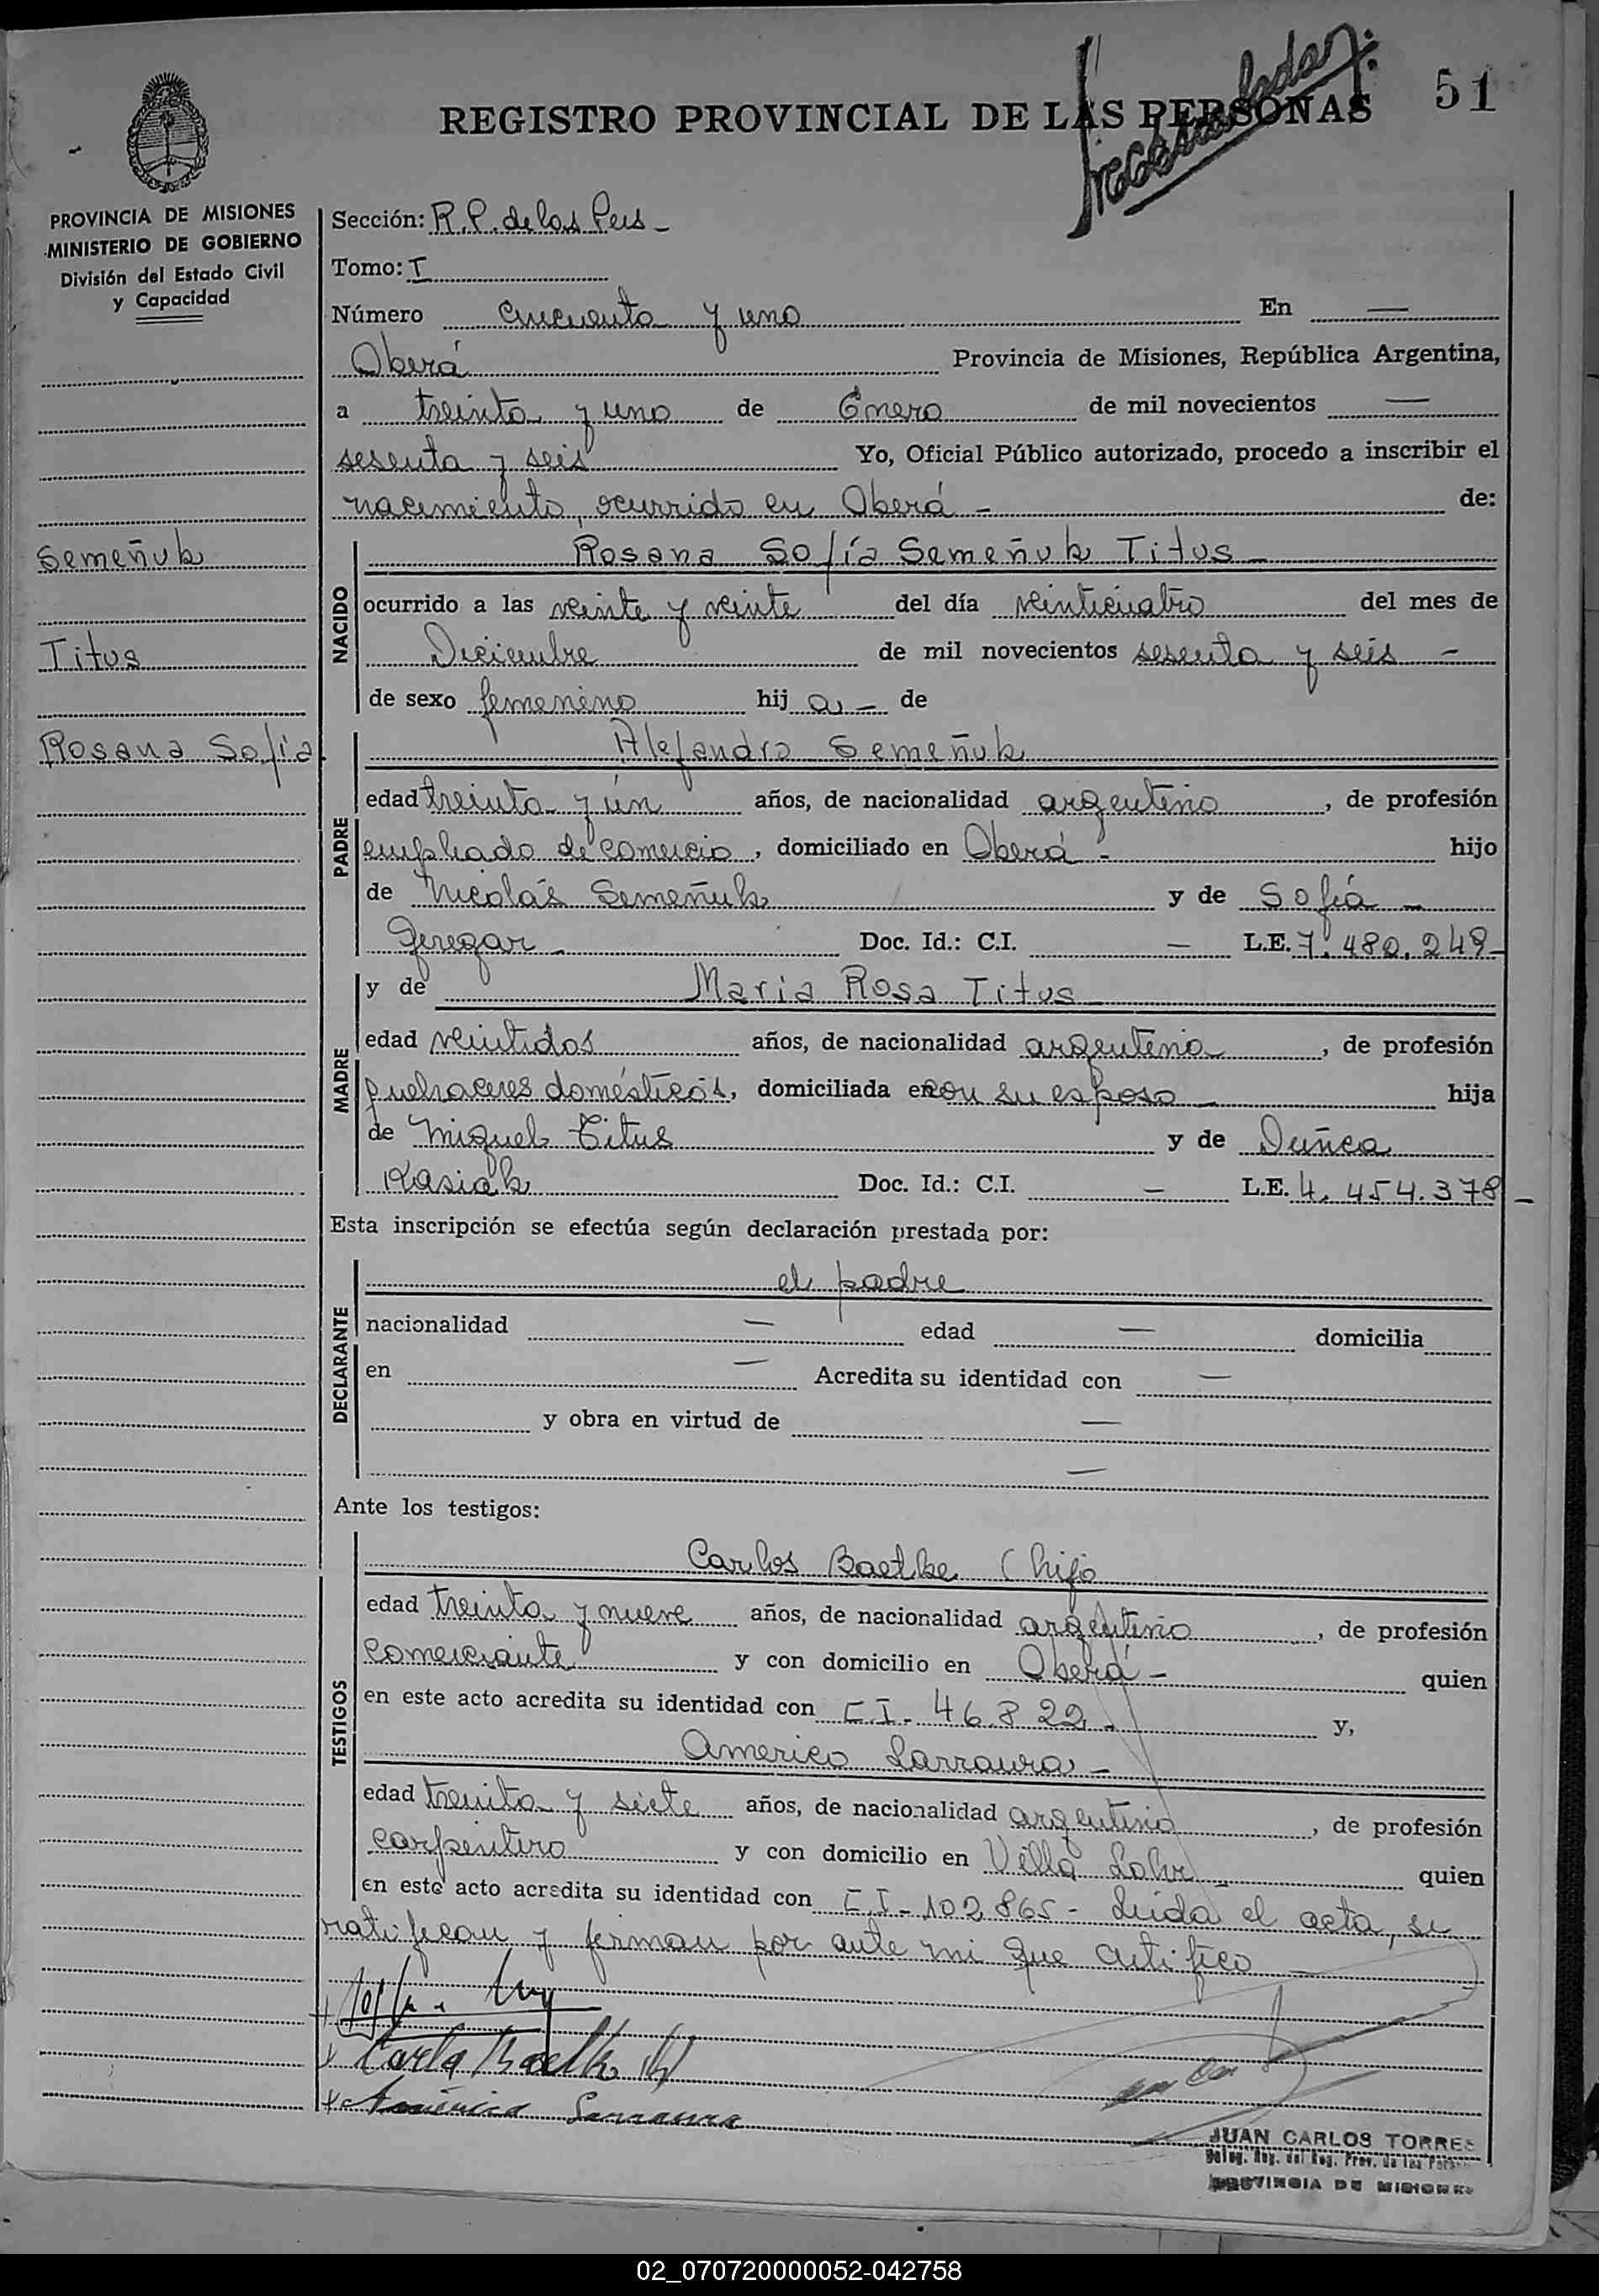 51
REGISTRO PROVINCIAL DE LAS PERSONAS
PROVINCIA DE MISIONES
MINISTERIO DE GOBIERNO
División del Estado Civil
y Capacidad
Semeñuk
Titus
Rosana Sofía
Sección: R.P. de las Pers -
Tomo: I
Número cincuenta y uno En —
Oberá Provincia de Misiones, República Argentina,
a treinta y uno de Enero de mil novecientos —
sesenta y seis Yo, Oficial Público autorizado, procedo a inscribir el
nacimiento, ocurrido en Oberá - de:
NACIDO
Rosana Sofía Semeñuk Titus -
ocurrido a las veinte y veinte del día veinticuatro del mes de
Diciembre de mil novecientos sesenta y seis -
de sexo femenino hij a - de
PADRE
Alejandro Semeñuk
edad treinta y ún años, de nacionalidad argentino, de profesión
empleado de comercio, domiciliado en Oberá - hijo
de Nicolás Semeñuk y de Sofía -
Geregar - Doc. Id.: C.I. — L.E. 7.480.249 -
MADRE
y de Maria Rosa Titus
edad veintidos años, de nacionalidad argentina, de profesión
quehaceres domésticos, domiciliada en con su esposo - hija
de Miguel Titus y de Duñca
Kasiak Doc. Id.: C.I. — L.E. 4.454.378 -
Esta inscripción se efectúa según declaración prestada por:
DECLARANTE
el padre
nacionalidad — edad — domicilia
en — Acredita su identidad con —
y obra en virtud de —
—
Ante los testigos:
TESTIGOS
Carlos Baetke (hijo
edad treinta y nueve años, de nacionalidad argentino, de profesión
comerciante y con domicilio en Oberá - quien
en este acto acredita su identidad con C.I - 46.822 - y,
Americo Larraura -
edad treinta y siete años, de nacionalidad argentino, de profesión
carpentero y con domicilio en Villa Lohr - quien
en este acto acredita su identidad con C.I - 102865 - Leida el acta, se
ratifican y firman por ante mi que certifico -
Carlos Baetke (h)
Américo Larraura
JUAN CARLOS TORRES
Deleg. Reg. del Reg. Prov. de las Pers.
PROVINCIA DE MISIONES
02_070720000052-042758